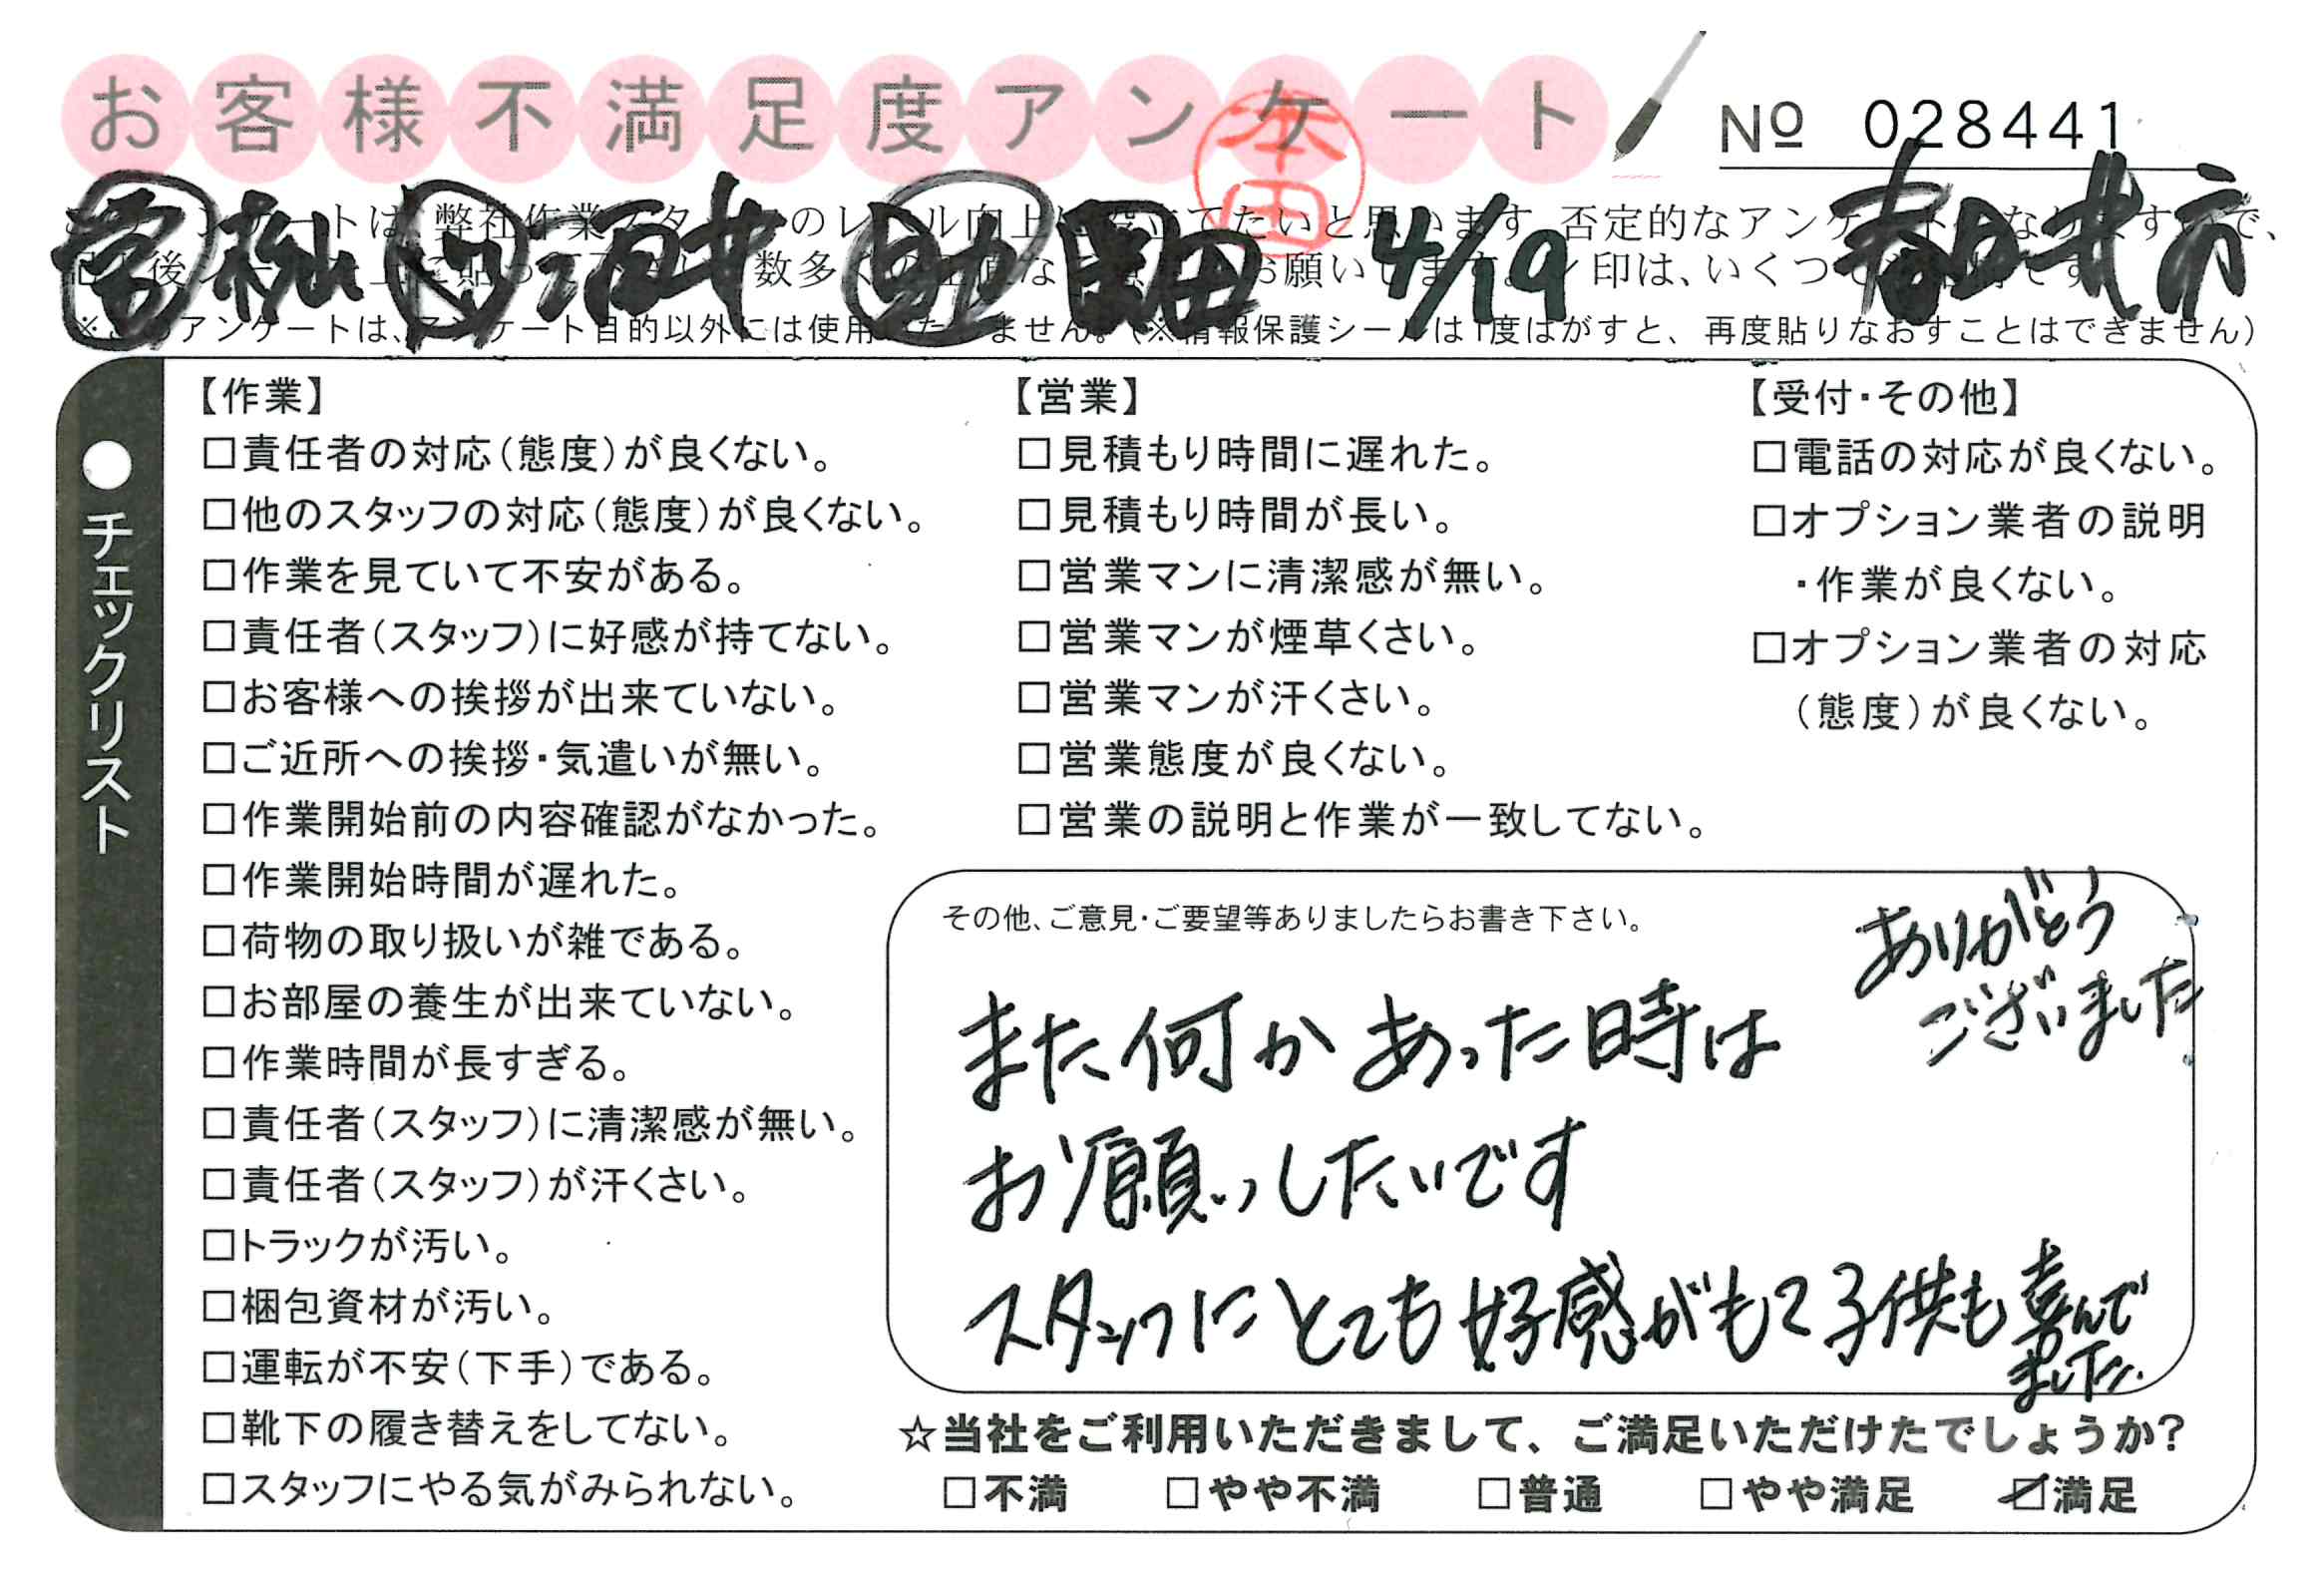 お客様不満足度アンケート
№ 028441
本田
4/19
春日井市
※このアンケートは、アンケート目的以外には使用いたしません。(※情報保護シールは1度はがすと、再度貼りなおすことはできません)
●チェックリスト
【作業】
□責任者の対応(態度)が良くない。
□他のスタッフの対応(態度)が良くない。
□作業を見ていて不安がある。
□責任者(スタッフ)に好感が持てない。
□お客様への挨拶が出来ていない。
□ご近所への挨拶・気遣いが無い。
□作業開始前の内容確認がなかった。
□作業開始時間が遅れた。
□荷物の取り扱いが雑である。
□お部屋の養生が出来ていない。
□作業時間が長すぎる。
□責任者(スタッフ)に清潔感が無い。
□責任者(スタッフ)が汗くさい。
□トラックが汚い。
□梱包資材が汚い。
□運転が不安(下手)である。
□靴下の履き替えをしてない。
□スタッフにやる気がみられない。
【営業】
□見積もり時間に遅れた。
□見積もり時間が長い。
□営業マンに清潔感が無い。
□営業マンが煙草くさい。
□営業マンが汗くさい。
□営業態度が良くない。
□営業の説明と作業が一致してない。
【受付・その他】
□電話の対応が良くない。
□オプション業者の説明
・作業が良くない。
□オプション業者の対応
(態度)が良くない。
その他、ご意見・ご要望等ありましたらお書き下さい。
ありがとう
ございました
また何かあった時は
お願いしたいです
スタッフにとても好感がもて子供も喜んで
ました。
☆当社をご利用いただきまして、ご満足いただけたでしょうか?
□不満 □やや不満 □普通 □やや満足 ☑満足